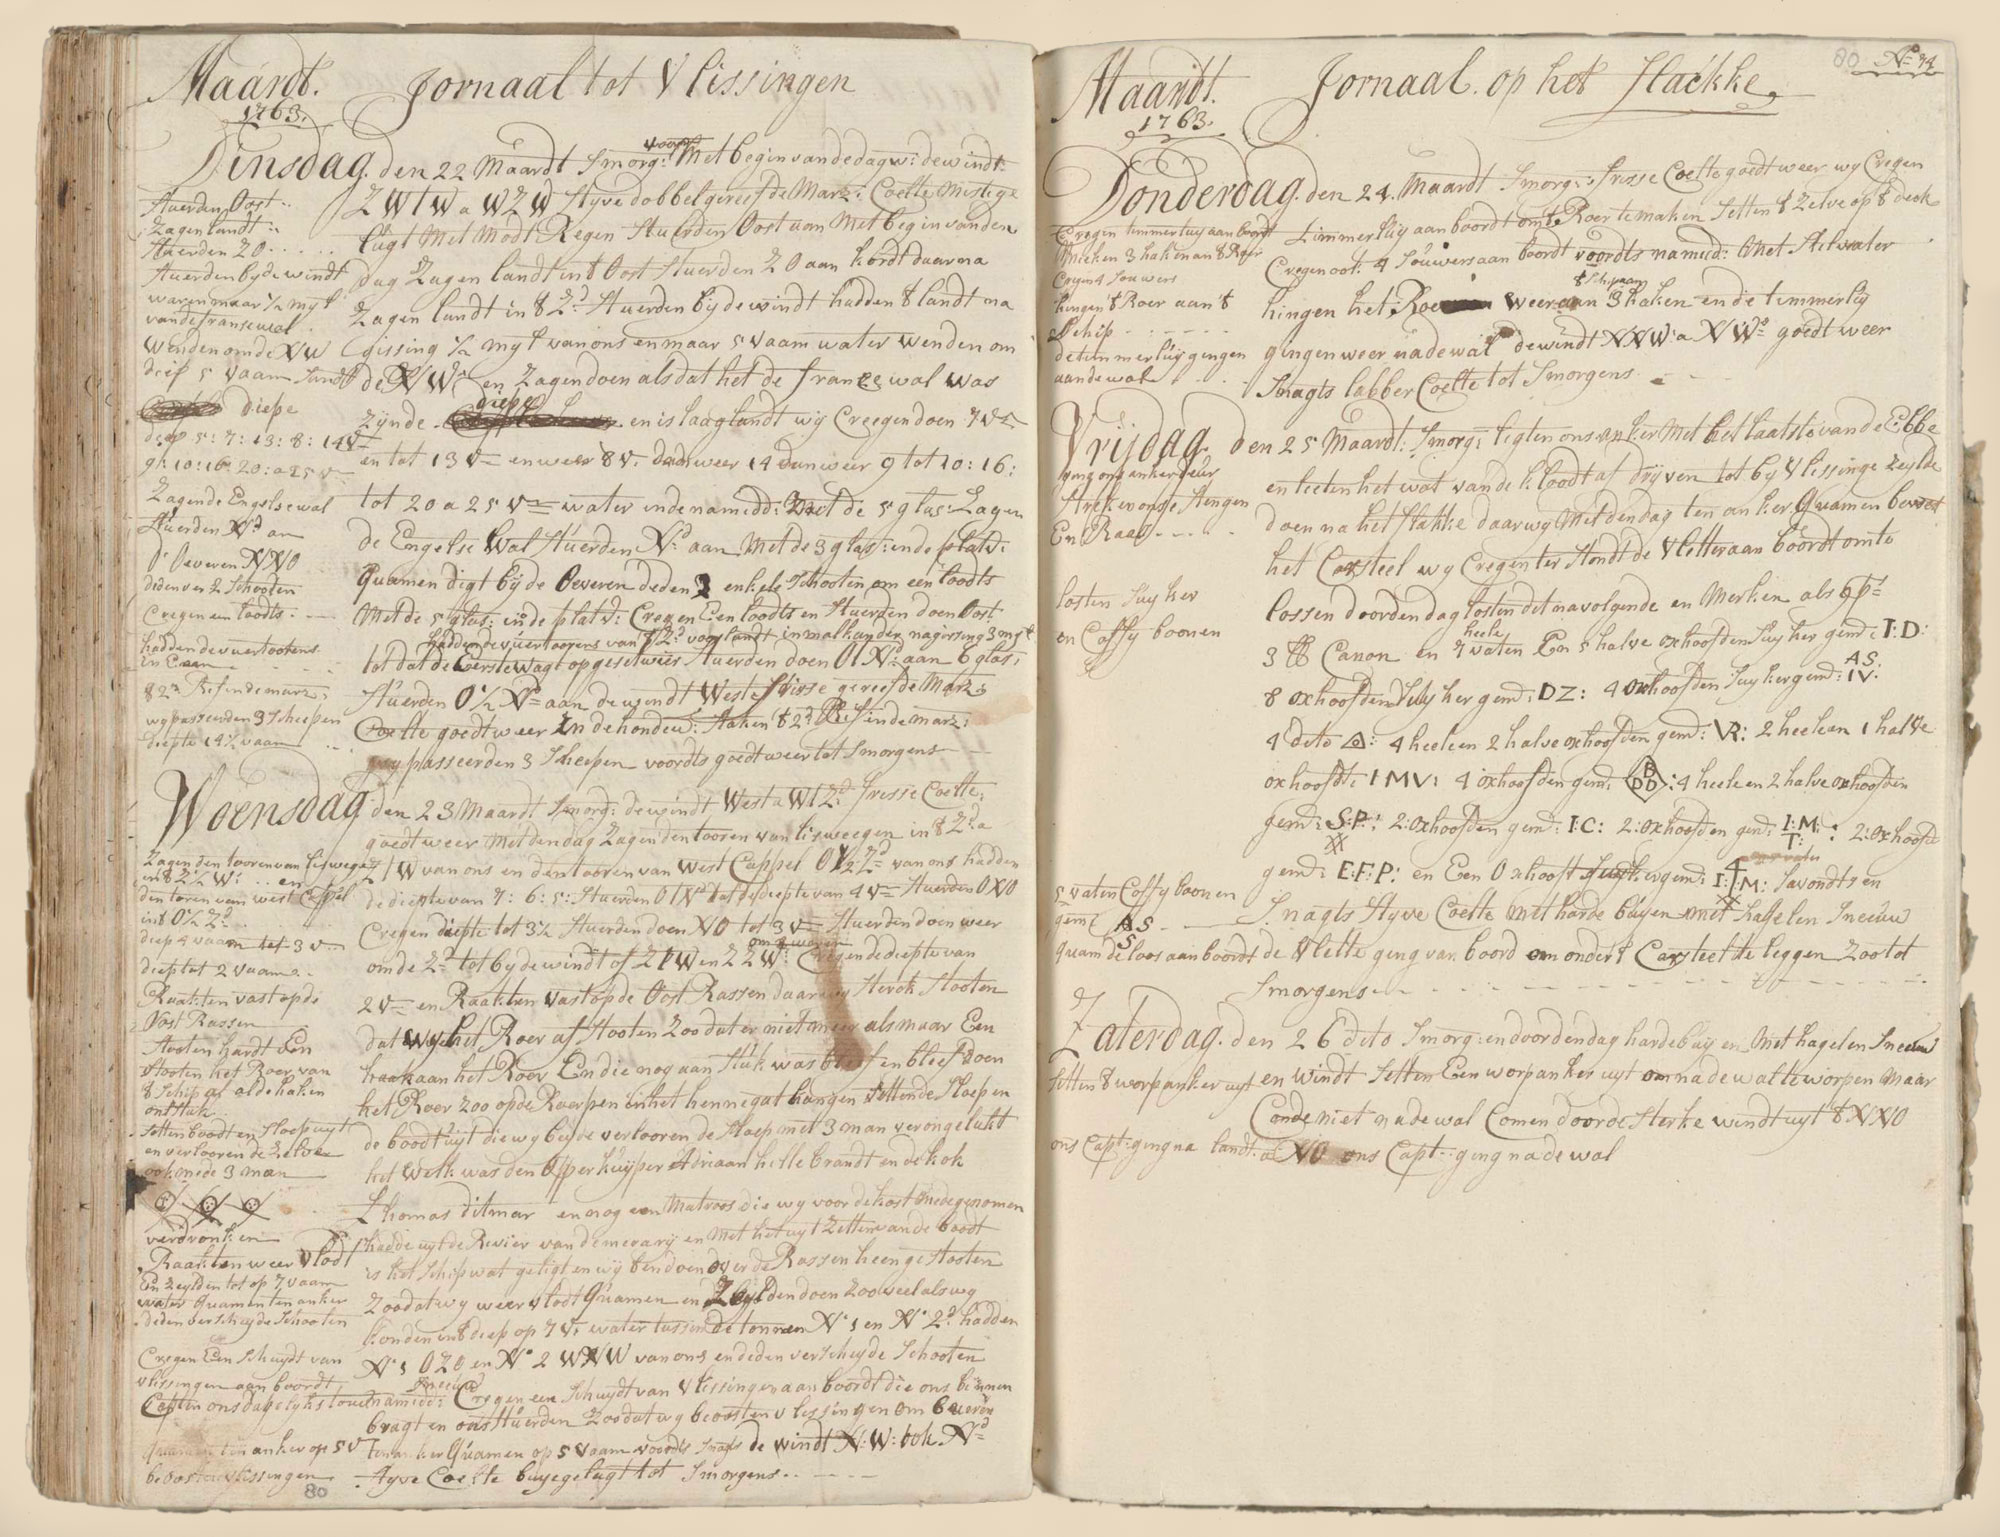 Maardt. Jornaal tot Vlissingen
1763.
Dinsdag. den 22 Maardt Smorg: voort Met begin van de dagw: de windt
ZWTW a WZW Styve dobbel gereefde Marz: Coelte Mistige
lugt Met Modt Regen Stuerden Oost aan Met begin van den
dag Zagen landt in 8 Oost Stuerden ZO aan kordt daar na
Zagen landt in 8 Zd Stuerden bij de windt hadden 8 landt na
gissing ½ myl van ons en maar 5 vaam water wenden om
de NW: en Zagen doen als dat het de franse wal was
zijnde diepe en is laag landt wij Creegen doen 7 Vm
en tot 13 Vm en weer 8 V: dan weer 14 dan weer 9 tot 10: 16:
tot 20 a 25 Vm water inde namidd: Met de 5 glas: Zagen
de Engelse Wal Stuerden Nd aan Met de 3 glas: inde platv:
Quamen digt bij de Oeveren deden 3 enkele Schooten om een loodts
Met de 5 glas: in de platv: Cregen Een loodts en Stuerden doen Oost
hadden de vuertoorens van 8 Zd voorlandt in malkander na gissing 3 myl
tot dat de Eerste wagt opgeset wier Stuerden doen OTNd aan 6 glas:
Stuerden O½Nd aan de windt West frisse gereefde Marz:
Coelte goedt weer In de hondew: Staken 8 2d Rif in de marz:
wy passeerden 3 Scheepen voordts goedt weer tot Smorgens
Stuerden Oost
Zagen landt
Stuerden ZO
Stuerden by de windt
waren maar ½ myl
van de franse wal
Wenden om de NW
diep 5 vaam Landt
diepe
diep 5: 7: 13: 8: 14 V
9: 10: 16: 20: a 25 V
Zagen de Engelse wal
Stuerden Nd an
d'Oeveren NNO
diden ver 2 Schooten
Cregen een loodts
hadden de vuertoorens
in Een
8 2d Rif in de marz:
wy passerden 3 Scheepen
diepte 14½ vaam
Woensdag den 23 Maardt Smorg: de windt West a WTZd frisse Coelte:
goedt weer Met den dag Zagen den tooren van lisweegen in 8 Zd a
ZTW van ons en den tooren van West Cappel OT½Zd van ons hadden
de diepte van 7: 6: 5: Stuerden OTNd tot de diepte van 4 Vm Stuerden ONO
Cregen diepte tot 3½ Stuerden doen NO tot 3 Vm Stuerden doen weer
om de Zd tot by de windt of ZTW en ZZW: Cregen de diepte van
2 Vm en Raakten vast op de Oost Rassen daar wy Sterck Stooten
dat wy het Roer af Stooten Zoo dat er niet meer als maar Een
haak aan het Roer En die nog aan Stuk was bleef en bleef doen
het Roer Zoo op de Roerpen in het hennegat hangen Settende Sloep en
de boodt uijt die wy beyde verlooren de Sloep met 3 man verongelukt
het Welk was den Opper kuijper Adriaan hillebrandt en de kok
Thomas ditmar en nog een Matroos die wy voor de kost medegenomen
hadde uyt de Revier van demerary en Met het uyt Zetten van de boodt
is het Schip wat geligt en wij ben doen over de Rassen heen gestooten
Zoodat wy weer vlodt Quamen en Zeylden doen Zoo veel als wy
konden in 8 diep op 7 V: water tussen de tonnen No 1 en No 2: hadden
No 1 OZO en No 2 WNW van ons en deden verscheyde Schooten
namidd: Cregen een Schuydt van Vlissingen aan boordt die ons binnen
bragt en ons Stuerden Zoodat wy beoosten Vlissingen om
ten anker Quamen op 5 Vaam voordts Snagts de windt N:W: ook Nd
Styve Coelte buyege lugt tot Smorgens
Zagen den tooren van lisweegen
in 8 Z½W: en
den toren van west Cappel
in 8 O½Zd
diep 4 vaam tot 3 V
diep tot 2 vaam
Raakten vast op de
Oost Rassen
Stooten hardt En
Stooten het Roer van
8 Schip af al de haken
ontstuk
Setten boodt en Sloep uyt
en verlooren de Zelve
ook mede 3 man
verdronken
Raakten weer Vlodt
En Zeylden tot op 7 Vaam
water Quamen ten anker
deden verscheyde Schooten
Cregen Een Schuydt van
Vlissingen aan boordt
Capten ons dagelyks tou
Quamen ten anker op 5 V
beoosten Vlissingen
80
Maardt. Jornaal. op het Slackke. 80 No 74
1763.
Donderdag. den 24. Maardt Smorg: frisse Coelte goedt weer wy Cregen
timmerluy aan boordt om te Roer te maken Setten 8 Zelve op 8 deck
Cregen oock 4 Souwers aan boordt voordts namidd: Met Stil water
hingen het Roer weer aan 8 Schip aan 3 haken en die timmerluy
gingen weer na de wal de windt NNW: a NWd goedt weer
Snagts labber Coelte tot Smorgens
Cregen timmerluy aan boordt
Maeken 3 haken an 8 Roer
Cregen 4 Souwers
hingen 8 Roer aan 8
Schip
de timmerluy gingen
aan de wal
Vrijdag. den 25 Maardt: Smorg: ligten ons anker Met het laatste van de Ebbe
en lieten het wat van de kloodt af drijven tot by Vlissinge Zeylde
doen na het Slakke daar wy Met den dag ten anker Quamen bewest
het Casteel wy Cregen ter Stondt de Vletters aan boordt om te
lossen door den dag losten dit navolgende en Merken als 6 ps
3 ℔ Canon en 7 heele vaten En 5 halve oxhoofden Suyker gemd: I:D:
8 oxhoofden Suyker gemd: DZ: 4 oxhoofden Suyker gemd: AS. IV:
4 dito △: 4 heele en 2 halve oxhoofden gemd: VR: 2 heele an 1 halve
oxhoofdt: IMV: 4 oxhoofden gemd: B DD: 4 heele en 2 halve oxhoofden
gemd: S:P: 2: oxhoofden gemd: I:C: 2: oxhoofden gemd: I:M: T: : 2: oxhoofd
gemd: E:F:P: en Een Oxhooft Suyker gemd: I:4M: Savondts en
Snagts Styve Coelte Met harde buyen met hagel en Sneeuw
de Vlette ging van boord om onder 8 Casteel te leggen Zoo tot
Smorgens
ging ons anker deur
Streken onse Stengen
En Raas
losten Suyker
en Coffy boonen
5 vaten Coffy boonen
gemd AS S
Quam de loos aan boordt
Zaterdag. den 26 dito Smorg: en door den dag harde buyen Met hagel en Sneeuw
en windt Setten Een worpanker uyt om na de wal te worpen Maar
Conde niet na de wal Comen door de Sterke windt uyt 8 NNO
a NO ons Capt: ging na de wal
Setten 8 worpanker uyt
ons Capt: ging na landt